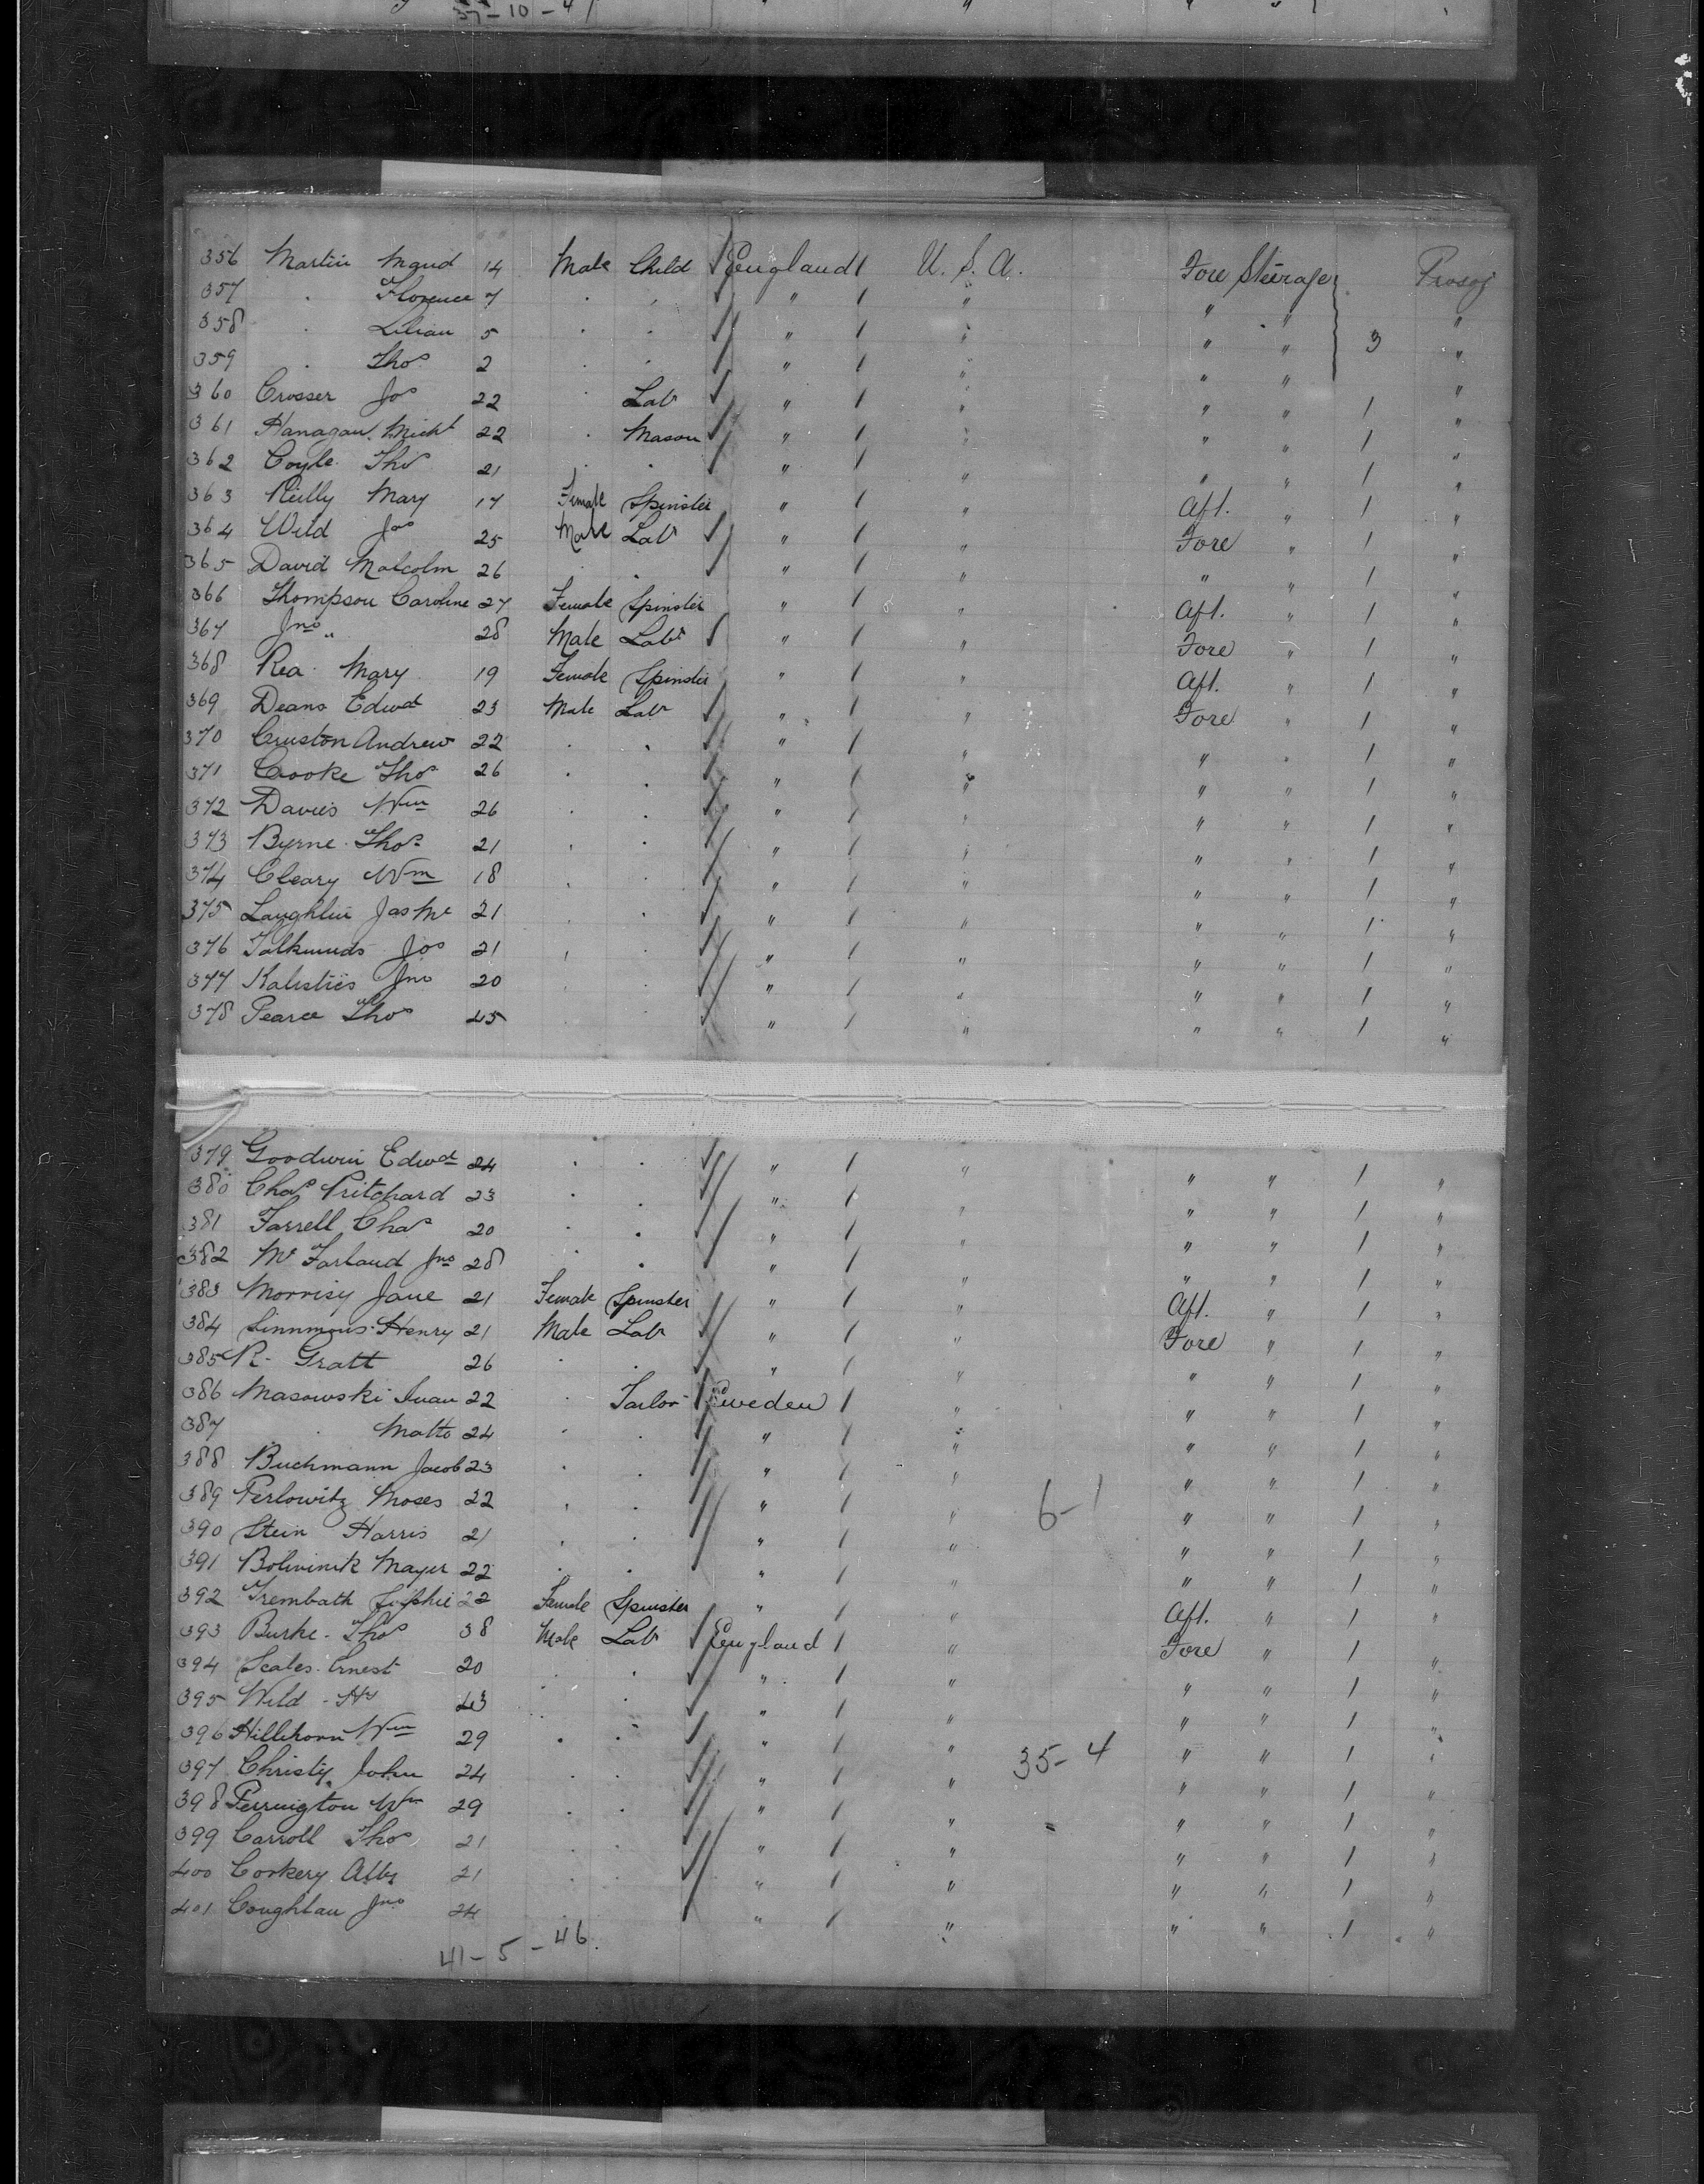 37-10-41
356 Martin Maud 14 Male Child England U. S. A. Fore Steerage
357 . Florence 7 . . " " " " "
358 . Lilian 5 . . " " " " 3 "
359 . Thos 2 . . " " " " "
360 Crosser Jos 22 . Labr " " " " 1 "
361 Hanagan Micht 22 . Mason " " " " 1 "
362 Coyle Thos 21 . . " " " " 1 "
363 Reilly Mary 17 Female Spinster " " Aft. " 1 "
364 Wild Jas 25 Male Labr " " Fore " 1 "
365 David Malcolm 26 . . " " " " 1 "
366 Thompson Caroline 27 Female Spinster " " Aft. " 1 "
367 Jno " 28 Male Labr " " Fore " 1 "
368 Rea Mary 19 Female Spinster " " Aft. " 1 "
369 Deans Edwd 23 Male Labr " " Fore " 1 "
370 Cruston Andrew 22 . . " " " " 1 "
371 Crooke Thos 26 . . " " " " 1 "
372 Davies Wm 26 . . " " " " 1 "
373 Byrne Thos 21 . . " " " " 1 "
374 Cleary Wm 18 . . " " " " 1 "
375 Laughlin Jas Mc 21 . . " " " " 1 "
376 Jos 21 . . " " " " 1 "
377 Kalisties Jno 20 . . " " " " 1 "
378 Pearce Thos 45 . . " " " " 1 "
379 Goodwin Edwd 24 . . " " " " 1 "
380 Chas Pritchard 23 . . " " " " 1 "
381 Farrell Chas 20 . . " " " " 1 "
382 Mc Farland Jno 28 . . " " " " 1 "
383 Morrisy Jane 21 Female Spinster " " Aft. " 1 "
384 Sinnmons Henry 21 Male Labr " " Fore " 1 "
385 R. Gratt 26 . . " " " " 1 "
386 Masowski Ivan 22 . Tailor Sweden " " " 1 "
387 . Matts 24 . . " " " " 1 "
388 Buchmann Jacob 23 . . " " " " 1 "
389 Perlowitz Moses 22 . . " " 6-1 " " 1 "
390 Stein Harris 21 . . " " " " 1 "
391 Bolwinik Mayer 22 . . " " " " 1 "
392 Trembath Sophie 22 Female Spinster " " Aft. " 1 "
393 Burke Thos 38 Male Labr England " Fore " 1 "
394 Scales Ernest 20 . . " " " " 1 "
395 Wild Hy 43 . . " " " " 1 "
396 Hillihorn Wm 29 . . " " " " 1 "
397 Christy John 24 . . " " 35-4 " " 1 "
398 Perrington Wm 29 . . " " " " 1 "
399 Carroll Thos 21 . . " " " " 1 "
400 Corkery 21 . . " " " " 1 "
401 Coughlan Jno 24 . . " " " " 1 "
41-5-46